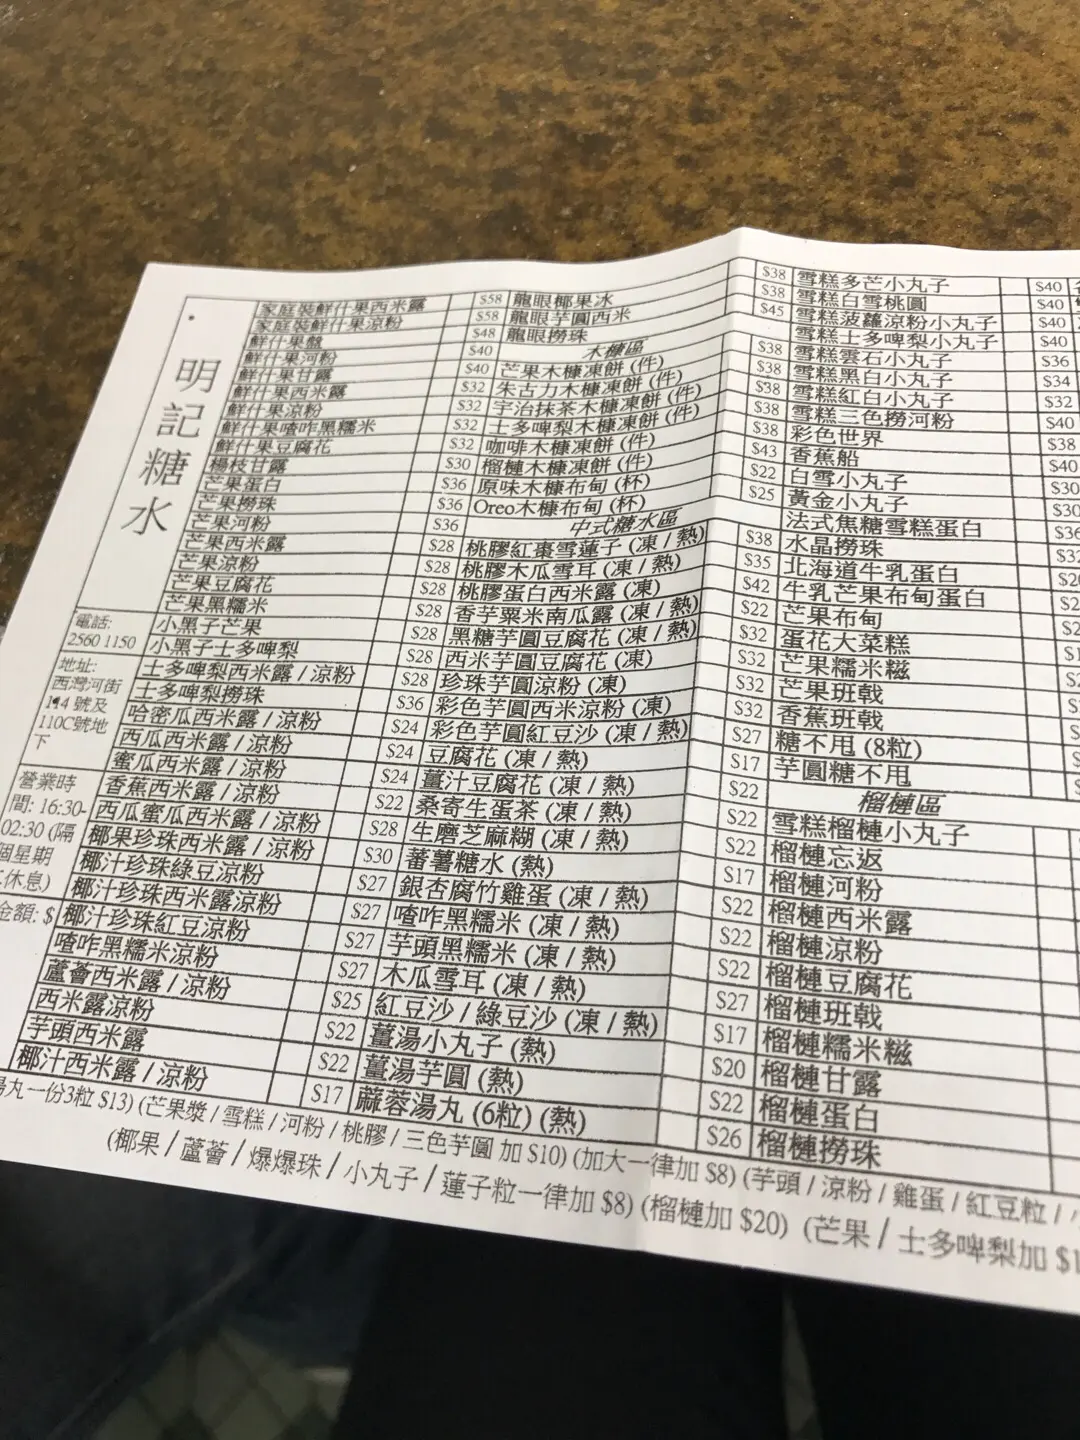 明記糖水
電話:
2560 1150
地址:
西灣河街
114 號及
110C號地
下
營業時
間: 16:30-
02:30 (隔
個星期
休息)
金額: $
家庭裝鮮什果西米露 $58
家庭裝鮮什果涼粉 $58
鮮什果盤 $48
鮮什果河粉 $40
鮮什果甘露 $40
鮮什果西米露 $32
鮮什果涼粉 $32
鮮什果喳咋黑糯米 $32
鮮什果豆腐花 $32
楊枝甘露 $30
芒果蛋白 $36
芒果撈珠 $36
芒果河粉 $36
芒果西米露 $28
芒果涼粉 $28
芒果豆腐花 $28
芒果黑糯米 $28
小黑子芒果 $28
小黑子士多啤梨 $28
士多啤梨西米露 / 涼粉 $28
士多啤梨撈珠 $36
哈密瓜西米露 / 涼粉 $24
西瓜西米露 / 涼粉 $24
蜜瓜西米露 / 涼粉 $24
香蕉西米露 / 涼粉 $22
西瓜蜜瓜西米露 / 涼粉 $28
椰果珍珠西米露 / 涼粉 $30
椰汁珍珠綠豆涼粉 $27
椰汁珍珠西米露涼粉 $27
椰汁珍珠紅豆涼粉 $27
喳咋黑糯米涼粉 $27
蘆薈西米露 / 涼粉 $25
西米露涼粉 $22
芋頭西米露 $22
椰汁西米露 / 涼粉 $17
龍眼椰果冰 $38
龍眼芋圓西米 $38
龍眼撈珠 $45
木糠區
芒果木糠凍餅 (件) $38
朱古力木糠凍餅 (件) $38
宇治抹茶木糠凍餅 (件) $38
士多啤梨木糠凍餅 (件) $38
咖啡木糠凍餅 (件) $38
榴槤木糠凍餅 (件) $43
原味木糠布甸 (杯) $22
Oreo木糠布甸 (杯) $25
中式糖水區
桃膠紅棗雪蓮子 (凍 / 熱) $38
桃膠木瓜雪耳 (凍 / 熱) $35
桃膠蛋白西米露 (凍) $42
香芋粟米南瓜露 (凍 / 熱) $22
黑糖芋圓豆腐花 (凍 / 熱) $32
西米芋圓豆腐花 (凍) $32
珍珠芋圓涼粉 (凍) $32
彩色芋圓西米涼粉 (凍) $32
彩色芋圓紅豆沙 (凍 / 熱) $27
豆腐花 (凍 / 熱) $17
薑汁豆腐花 (凍 / 熱) $22
桑寄生蛋茶 (凍 / 熱) $22
生磨芝麻糊 (凍 / 熱) $22
蕃薯糖水 (熱) $17
銀杏腐竹雞蛋 (凍 / 熱) $22
喳咋黑糯米 (凍 / 熱) $22
芋頭黑糯米 (凍 / 熱) $22
木瓜雪耳 (凍 / 熱) $27
紅豆沙 / 綠豆沙 (凍 / 熱) $17
薑湯小丸子 (熱) $20
薑湯芋圓 (熱) $22
蔴蓉湯丸 (6粒) (熱) $26
雪糕多芒小丸子 $40
雪糕白雪桃圓 $40
雪糕菠蘿涼粉小丸子 $40
雪糕士多啤梨小丸子 $40
雪糕雲石小丸子 $36
雪糕黑白小丸子 $34
雪糕紅白小丸子 $32
雪糕三色撈河粉 $40
彩色世界 $38
香蕉船 $40
白雪小丸子 $30
黃金小丸子 $30
法式焦糖雪糕蛋白
水晶撈珠
北海道牛乳蛋白
牛乳芒果布甸蛋白
芒果布甸
蛋花大菜糕
芒果糯米糍
芒果班戟
香蕉班戟
糖不甩 (8粒)
芋圓糖不甩
榴槤區
雪糕榴槤小丸子
榴槤忘返
榴槤河粉
榴槤西米露
榴槤涼粉
榴槤豆腐花
榴槤班戟
榴槤糯米糍
榴槤甘露
榴槤蛋白
榴槤撈珠
湯丸一份3粒 $13) (芒果漿 / 雪糕 / 河粉 / 桃膠 / 三色芋圓 加 $10) (加大一律加 $8) (芋頭 / 涼粉 / 雞蛋 / 紅豆粒 /
(椰果 / 蘆薈 / 爆爆珠 / 小丸子 / 蓮子粒一律加 $8) (榴槤加 $20) (芒果 / 士多啤梨加